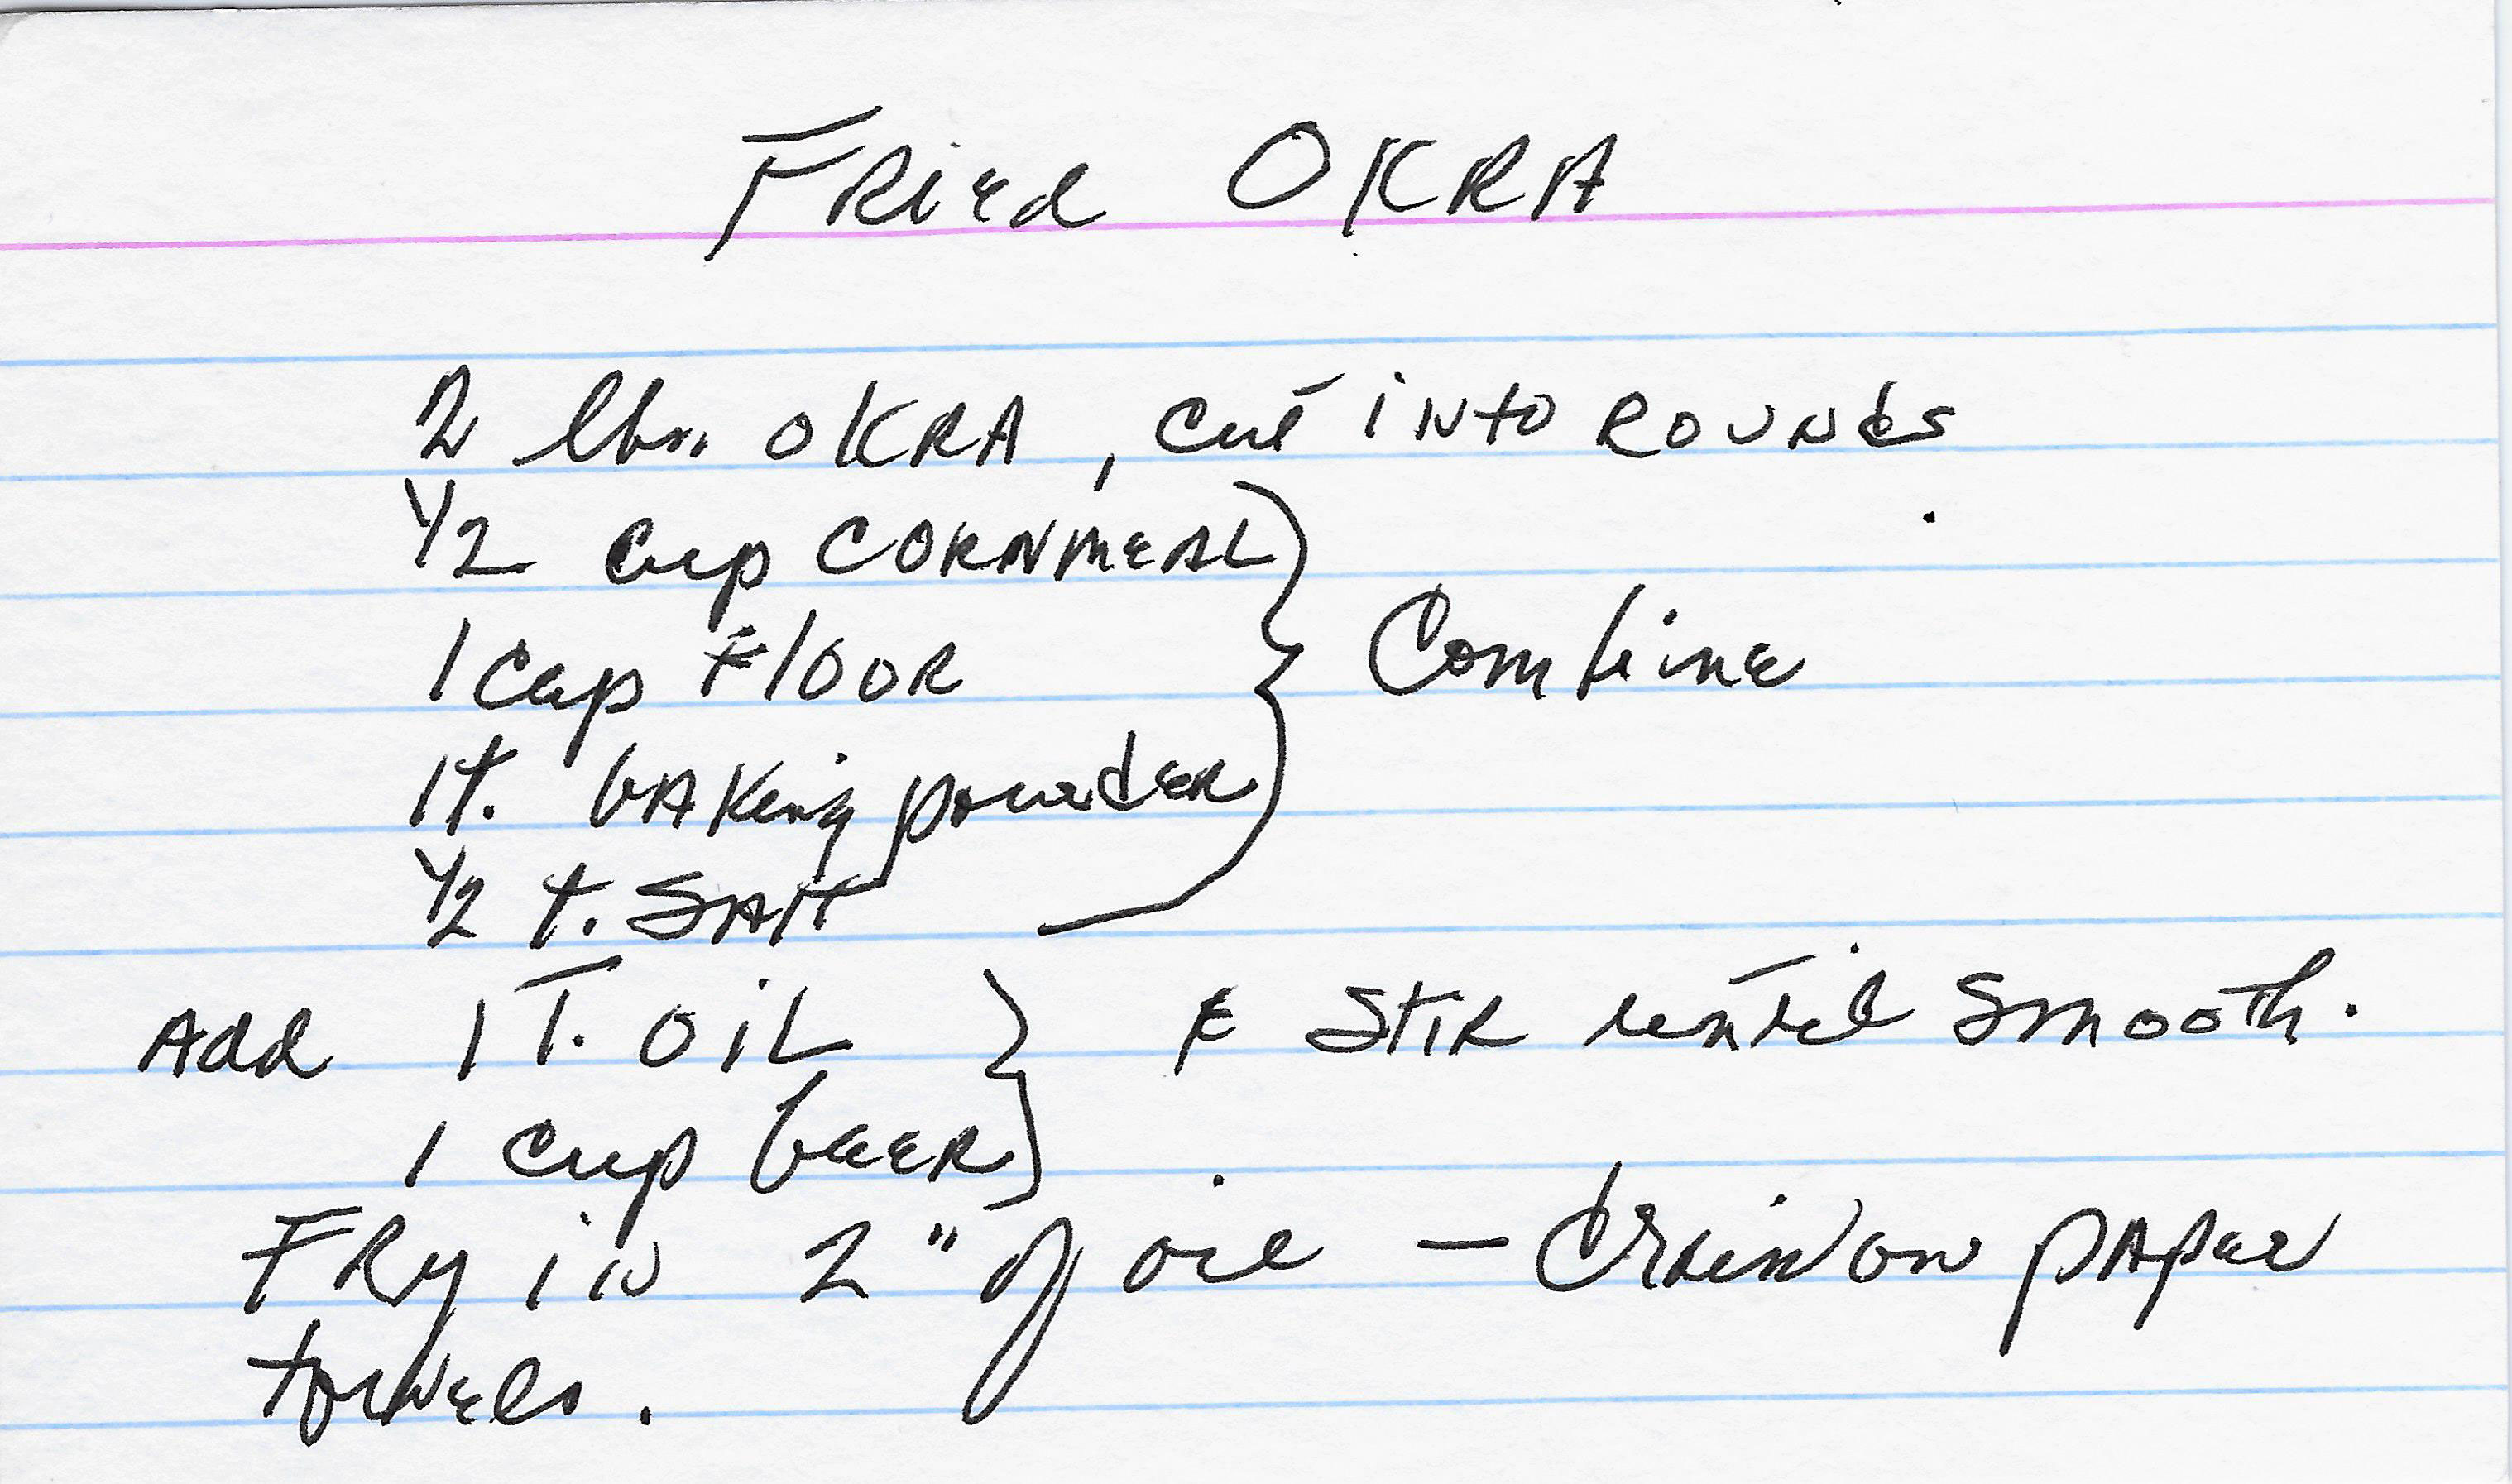 Fried OKRA
2 lbs. OKRA, cut into Rounds
1/2 cup CORNMEAL
1 cup Floor
Combine
1 t. baking powder
1/2 t. SAlt
Add 1 T. OiL & Stir until Smooth.
1 cup beer
FRy in 2" of oil — drain on paper
towels.